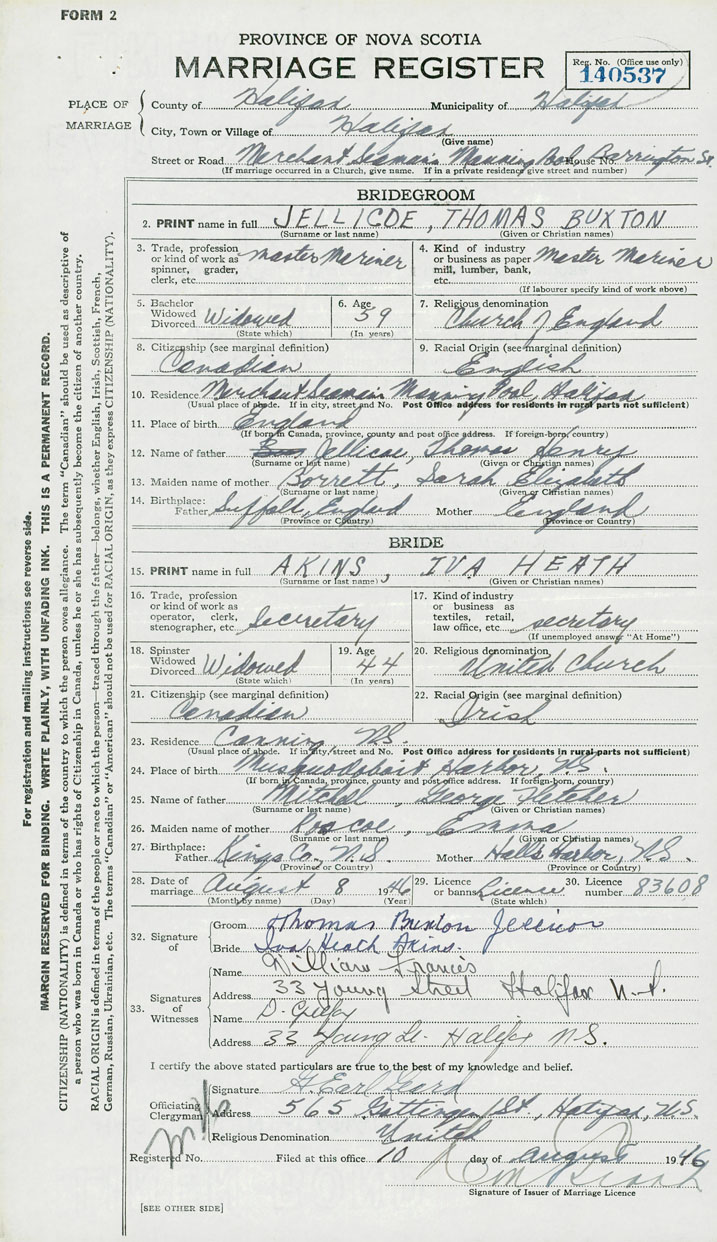 FORM 2
PROVINCE OF NOVA SCOTIA
MARRIAGE REGISTER
Reg. No. (Office use only)
140537
PLACE OF MARRIAGE
County of Halifax Municipality of Halifax
City, Town or Village of Halifax
(Give name)
Street or Road Merchant Seaman's Manning Pool House No. Barrington St.
(If marriage occurred in a Church, give name. If in a private residence give street and number)
BRIDEGROOM
2. PRINT name in full JELLICOE, THOMAS BUXTON
(Surname or last name) (Given or Christian names)
3. Trade, profession or kind of work as spinner, grader, clerk, etc. Master Mariner
4. Kind of industry or business as paper mill, lumber, bank, etc. Master Mariner
(If labourer specify kind of work above)
5. Bachelor Widowed Divorced Widowed
(State which)
6. Age 39
(In years)
7. Religious denomination
Church of England
8. Citizenship (see marginal definition)
Canadian
9. Racial Origin (see marginal definition)
English
10. Residence Merchant Seaman's Manning Pool, Halifax
(Usual place of abode. If in city, street and No. Post Office address for residents in rural parts not sufficient)
11. Place of birth England
(If born in Canada, province, county and post office address. If foreign-born, country)
12. Name of father Jellicoe, Thomas Henry
(Surname or last name) (Given or Christian names)
13. Maiden name of mother Borrett, Sarah Elizabeth
(Surname or last name) (Given or Christian names)
14. Birthplace: Father Suffolk, England Mother England
(Province or Country) (Province or Country)
BRIDE
15. PRINT name in full AKINS, IVA HEATH
(Surname or last name) (Given or Christian names)
16. Trade, profession or kind of work as operator, clerk, stenographer, etc. Secretary
17. Kind of industry or business as textiles, retail, law office, etc. secretary
(If unemployed answer "At Home")
18. Spinster Widowed Divorced Widowed
(State which)
19. Age 44
(In years)
20. Religious denomination
United Church
21. Citizenship (see marginal definition)
Canadian
22. Racial Origin (see marginal definition)
Irish
23. Residence Canning, N.S.
(Usual place of abode. If in city, street and No. Post Office address for residents in rural parts not sufficient)
24. Place of birth Musquodoboit Harbor, N.S.
(If born in Canada, province, county and post office address. If foreign-born, country)
25. Name of father Mitchel, George Fletcher
(Surname or last name) (Given or Christian names)
26. Maiden name of mother Roscoe, Emma
(Surname or last name) (Given or Christian names)
27. Birthplace: Father Kings Co., N.S. Mother Halls Harbor, N.S.
(Province or Country) (Province or Country)
28. Date of marriage August 8 1946
(Month by name) (Day) (Year)
29. Licence or banns License
(State which)
30. Licence number 83608
32. Signature of
Groom Thomas Buxton Jellicoe
Bride Iva Heath Akins.
33. Signatures of Witnesses
Name William Francis
Address 33 Young Street Halifax N.S.
Name D.
Address 33 Young St. Halifax N.S.
I certify the above stated particulars are true to the best of my knowledge and belief.
Officiating Clergyman
Signature
Address 565 Gottingen St., Halifax, N.S.
Religious Denomination United
Registered No. Filed at this office 10 day of August 1946
Signature of Issuer of Marriage Licence
[SEE OTHER SIDE]
For registration and mailing instructions see reverse side.
MARGIN RESERVED FOR BINDING. WRITE PLAINLY, WITH UNFADING INK. THIS IS A PERMANENT RECORD.
CITIZENSHIP (NATIONALITY) is defined in terms of the country to which the person owes allegiance. The term "Canadian" should be used as descriptive of
a person who was born in Canada or who has rights of Citizenship in Canada, unless he or she has subsequently become the citizen of another country.
RACIAL ORIGIN is defined in terms of the people or race to which the person—traced through the father—belongs, whether English, Irish, Scottish, French,
German, Russian, Ukrainian, etc. The terms "Canadian" or "American" should not be used for RACIAL ORIGIN, as they express CITIZENSHIP (NATIONALITY).